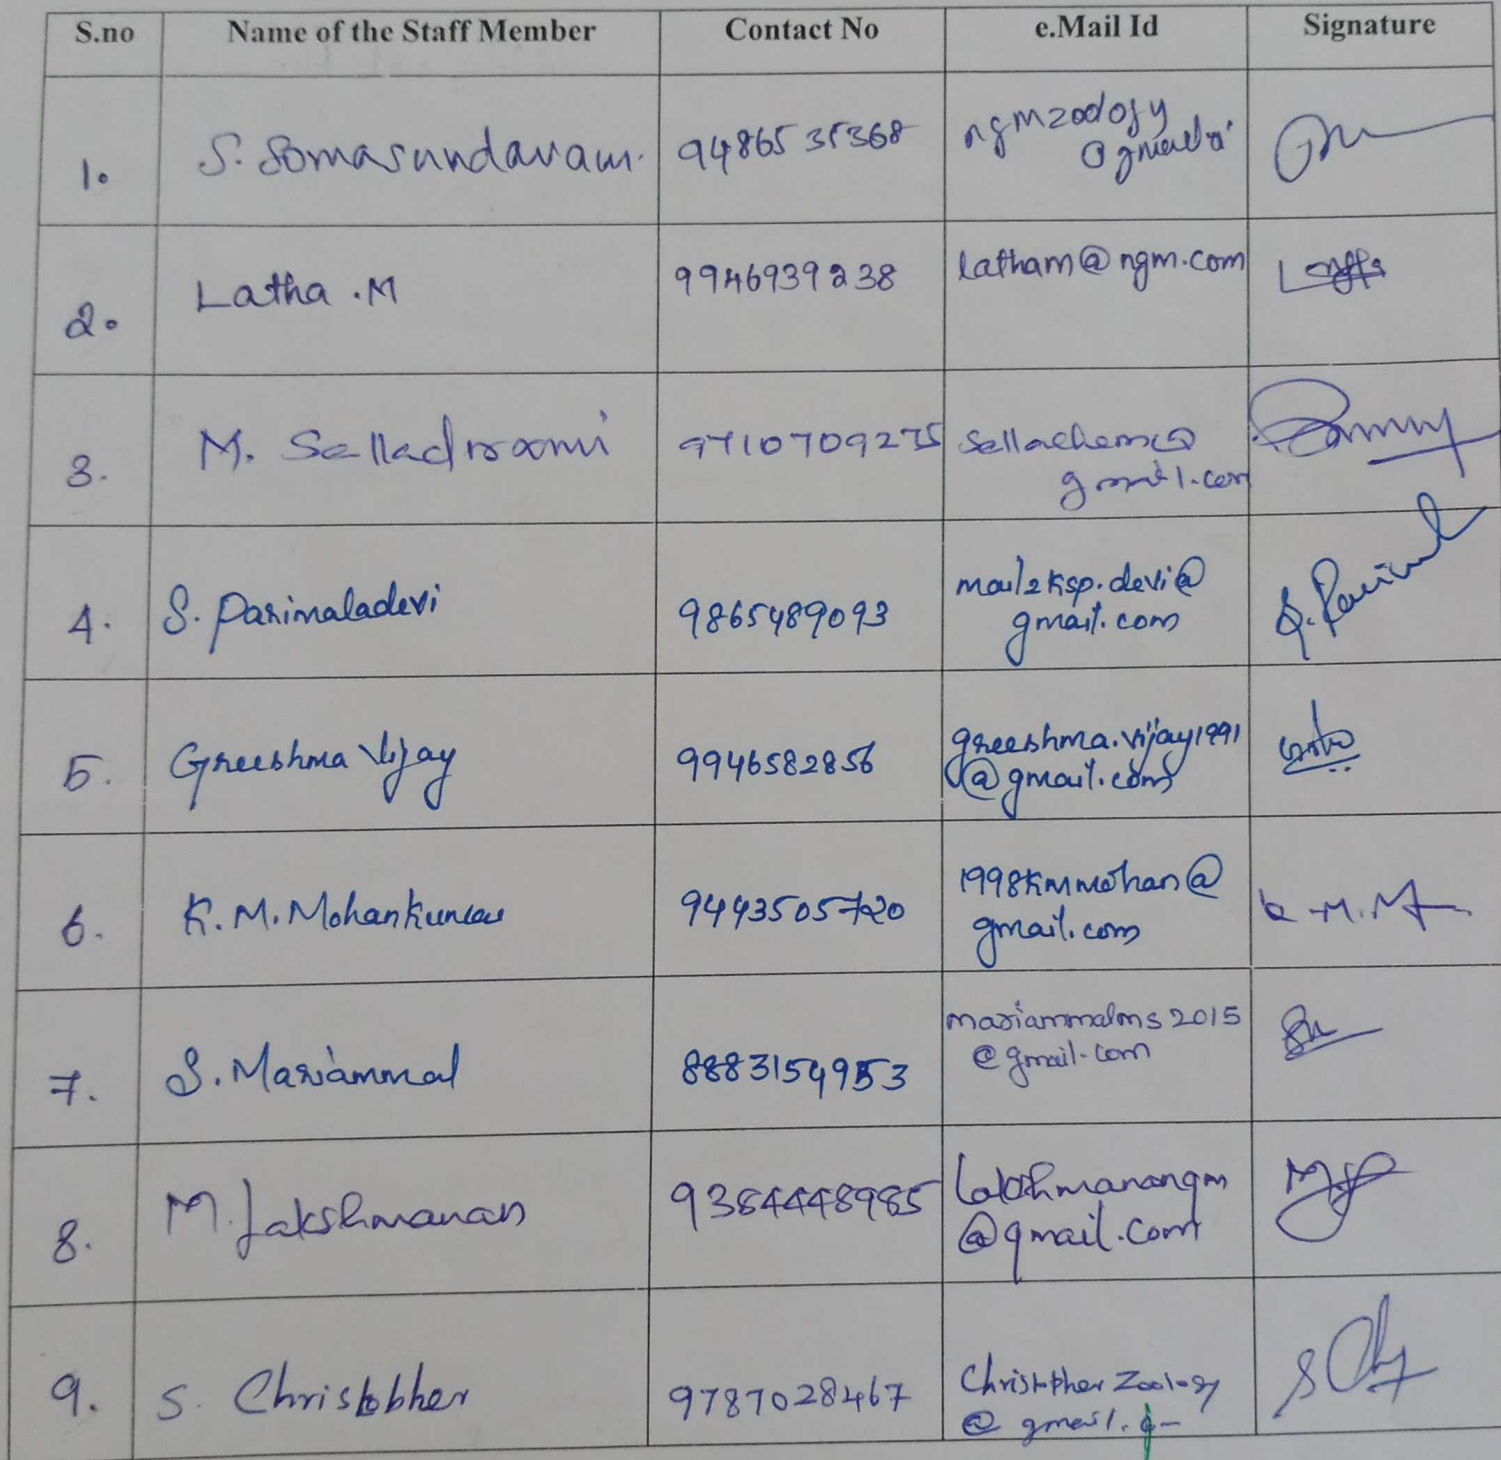 S.no Name of the Staff Member Contact No e.Mail Id Signature
1. S. Somasundaram. 9486535368 ngmzoology
@gmail
2. Latha .M 9946939238 latham@ngm.com
3. M. Selladurai 9710709275 Sellachem@
gmail.com
4. S. Parimaladevi 9865489093 mail2ksp.devi@
gmail.com S. Parimal
5. Greeshma Vijay 9946582856 greeshma.vijay1991
@gmail.com
6. K.M.Mohankumar 9443505720 1998kmmohan@
gmail.com K.M.M
7. S.Mariammal 8883154953 mariammalms2015
@gmail.com
8. M.Lakshmanan 9384448985 lakshmanangm
@gmail.com
9. S. Christobher 9787028467 Christopher Zoology
@ gmail.